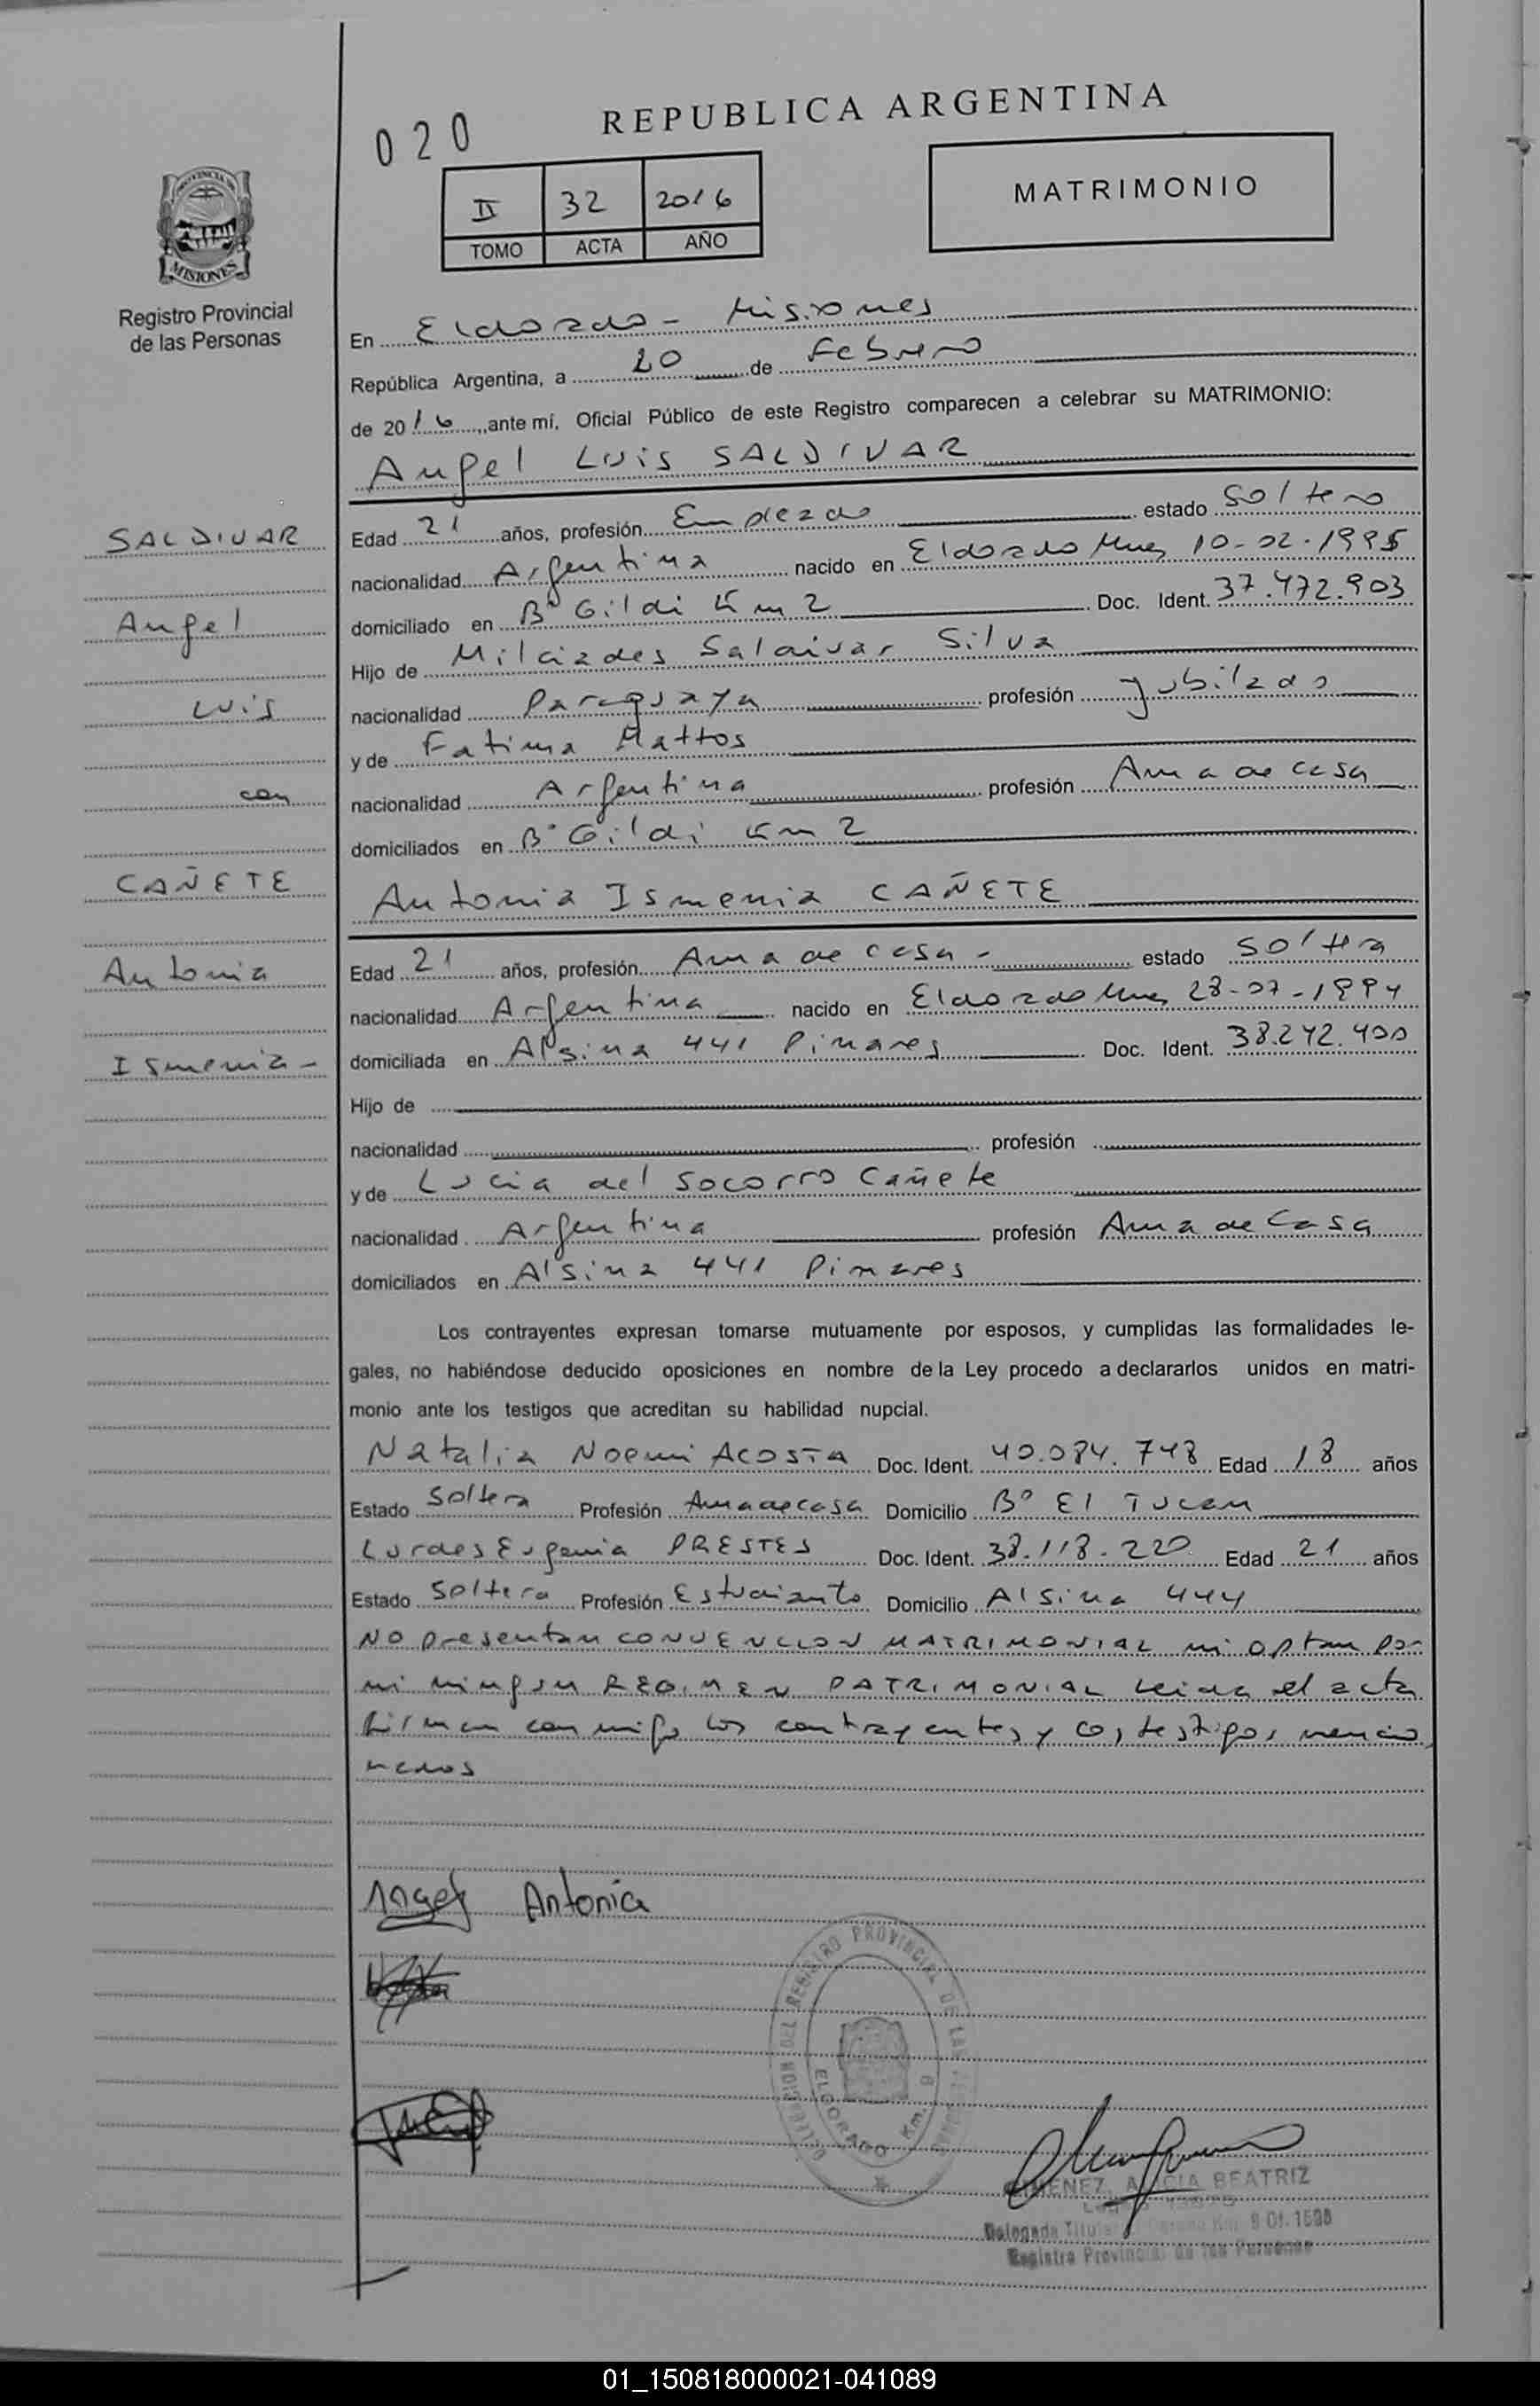 020
REPUBLICA ARGENTINA
II 32 2016
TOMO ACTA AÑO
MATRIMONIO
PROVINCIA DE
MISIONES
Registro Provincial
de las Personas
En Eldorado - Misiones
República Argentina, a 20 de Febrero
de 2016, ante mí, Oficial Público de este Registro comparecen a celebrar su MATRIMONIO:
Angel Luis SALDIVAR
SALDIVAR
Angel
Luis
con
CAÑETE
Antonia
Ismenia -
Edad 21 años, profesión Empleado estado Soltero
nacionalidad Argentina nacido en Eldorado Mnes 10-02-1995
domiciliado en B° Gildi Km 2 Doc. Ident. 37.472.903
Hijo de Milciades Saldivar Silva
nacionalidad Paraguaya profesión Jubilado
y de Fatima Mattos
nacionalidad Argentina profesión Ama de casa
domiciliados en B° Gildi Km 2
Antonia Ismenia CAÑETE
Edad 21 años, profesión Ama de casa - estado Soltera
nacionalidad Argentina nacido en Eldorado Mnes 28-07-1994
domiciliada en Alsina 441 Pinares Doc. Ident. 38.242.400
Hijo de
nacionalidad profesión
y de Lucia del Socorro Cañete
nacionalidad Argentina profesión Ama de Casa
domiciliados en Alsina 441 Pinares
Los contrayentes expresan tomarse mutuamente por esposos, y cumplidas las formalidades le-
gales, no habiéndose deducido oposiciones en nombre de la Ley procedo a declararlos unidos en matri-
monio ante los testigos que acreditan su habilidad nupcial.
Natalia Noemi ACOSTA Doc. Ident. 40.084.748 Edad 18 años
Estado Soltera Profesión Ama de casa Domicilio B° El Tucan
Lurdes Eugenia PRESTES Doc. Ident. 38.118.220 Edad 21 años
Estado Soltera Profesión Estudiante Domicilio Alsina 444
No presentan CONVENCION MATRIMONIAL ni optan por
ni ningun REGIMEN PATRIMONIAL Leida el acta
firman conmigo los contrayentes y los testigos mencio
nados
Angel Antonia
DELEGACION DEL REGISTRO PROVINCIAL DE LAS PERSONAS
ELDORADO Km. 9
GIMENEZ, ALICIA BEATRIZ
Delegada Titular Km. 9 Of. 1598
Registro Provincial de las Personas
01_150818000021-041089